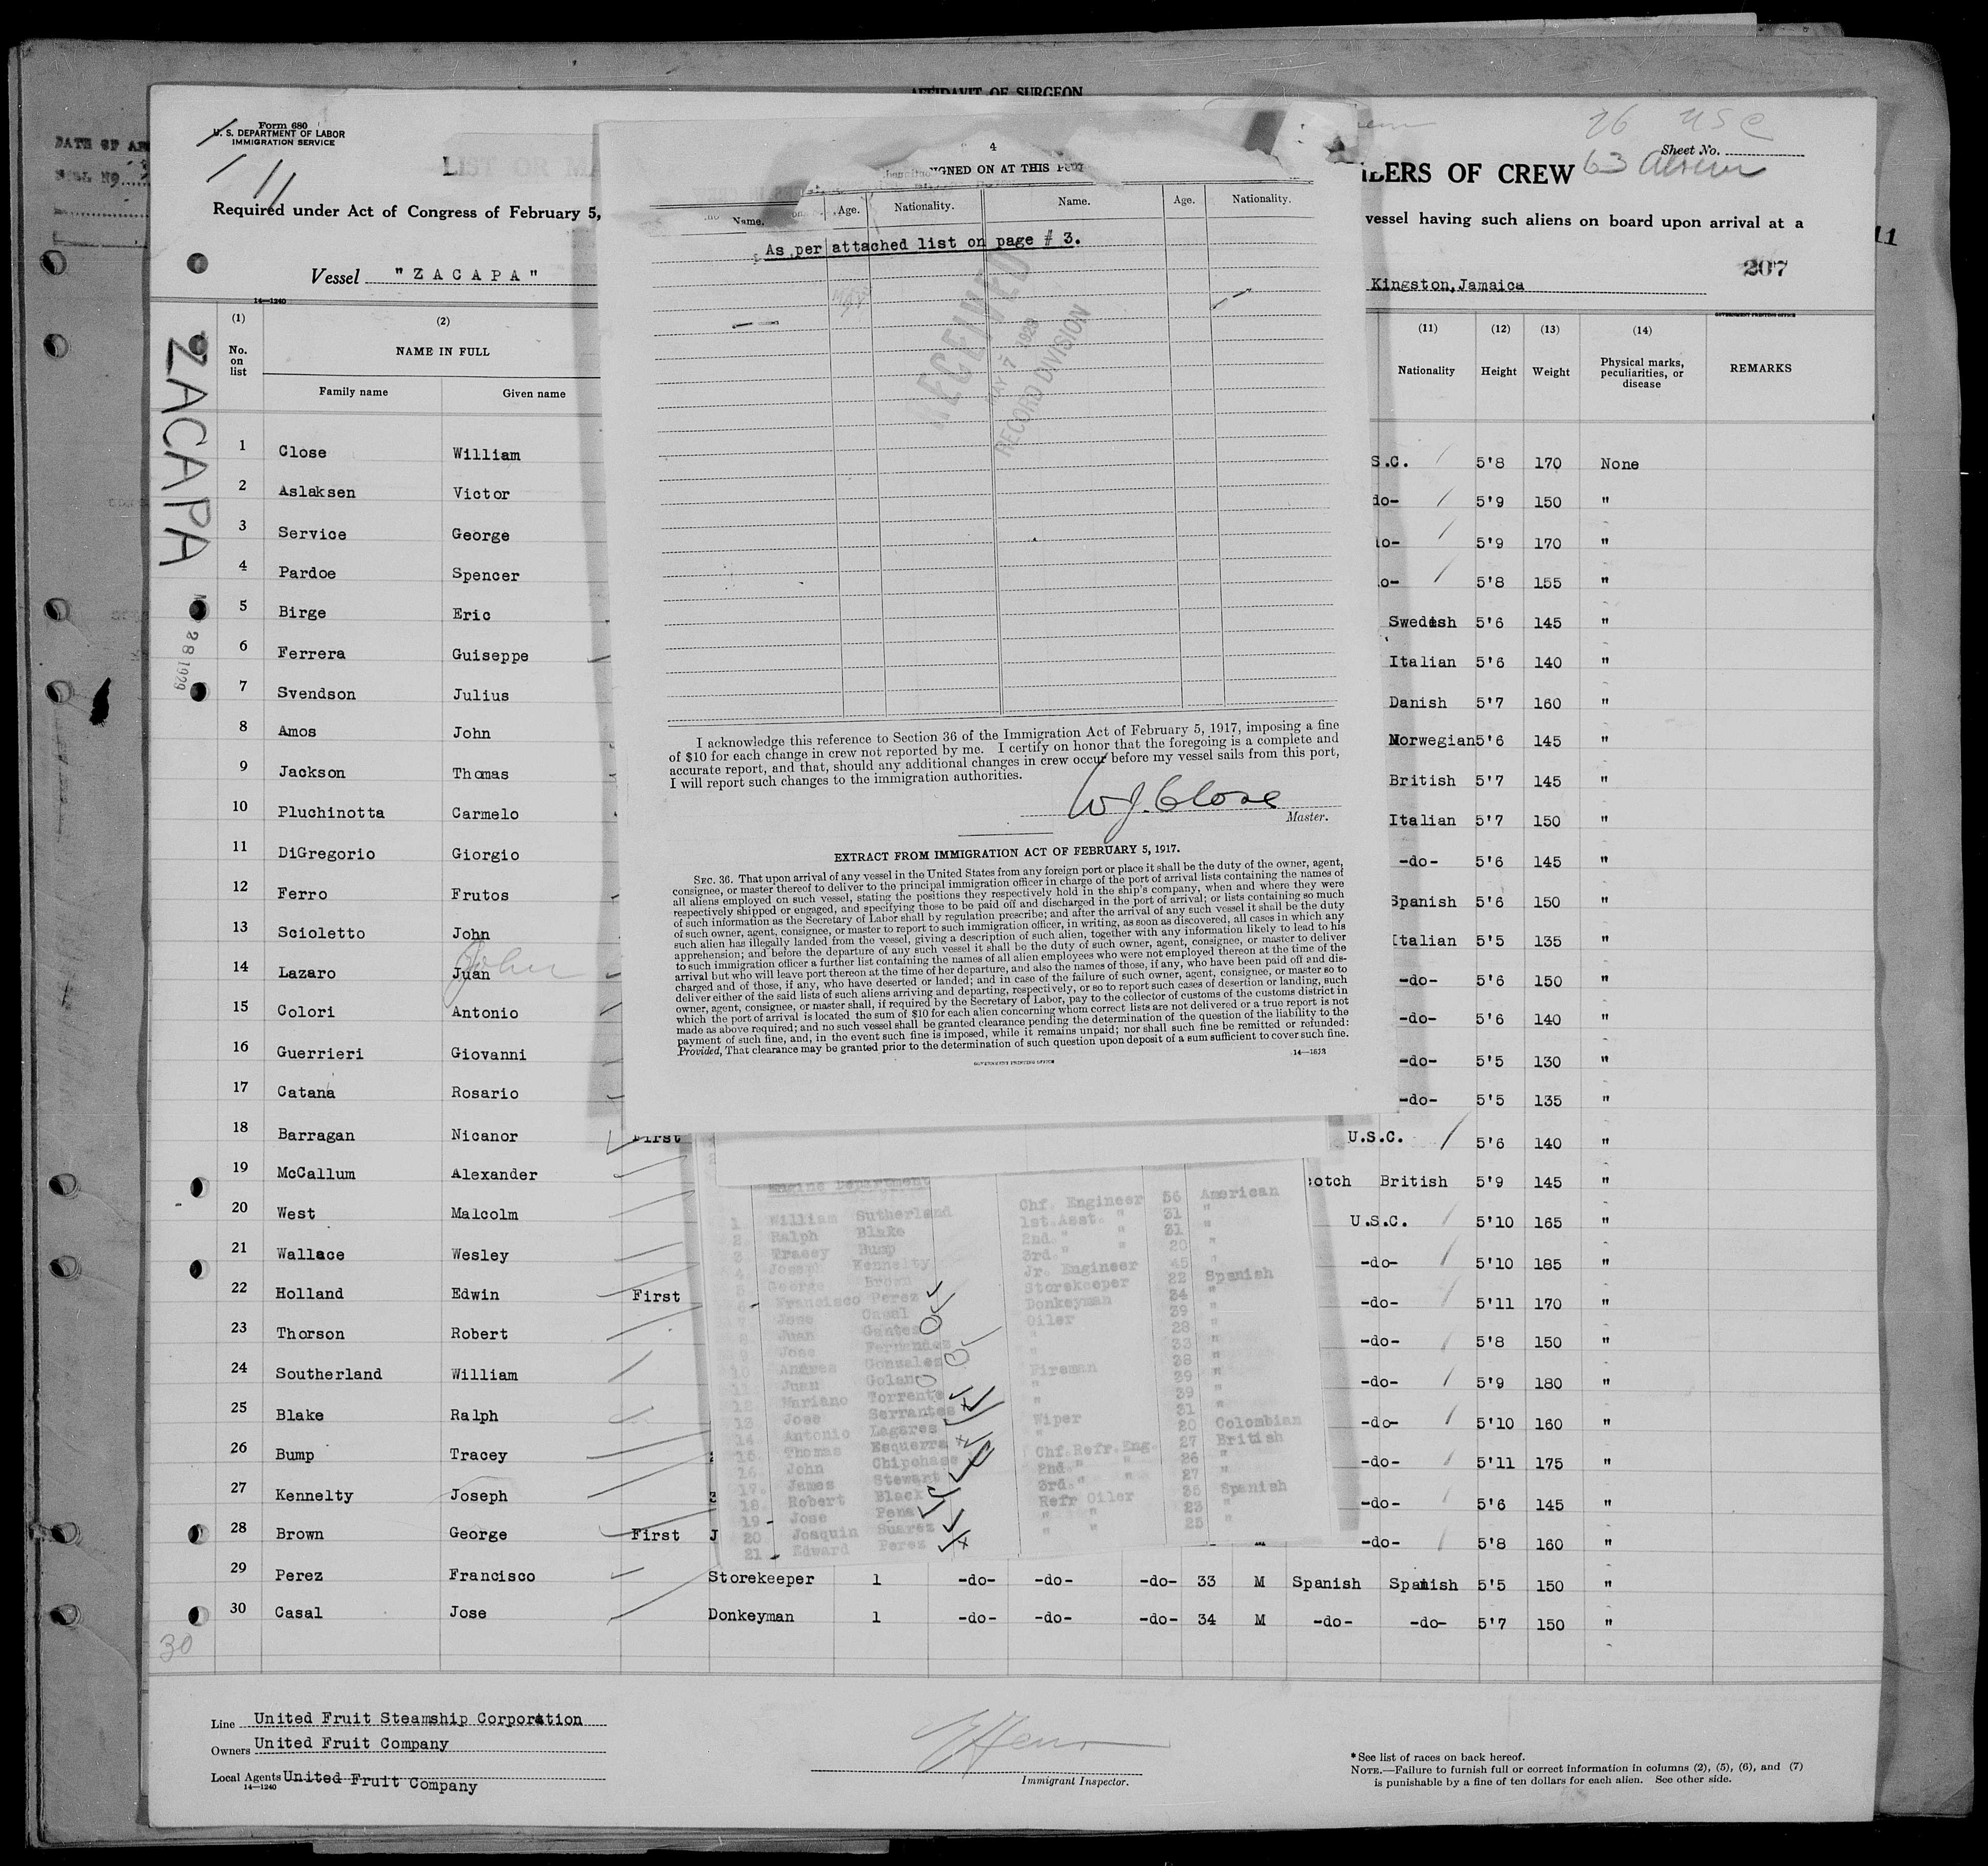 AFFIDAVIT OF SURGEON
Form 680
U. S. DEPARTMENT OF LABOR
IMMIGRATION SERVICE
11
LIST OR MA
Required under Act of Congress of February 5,
Vessel "ZACAPA"
14—1240
26 USC
Sheet No.
63 Aliens
ILERS OF CREW
vessel having such aliens on board upon arrival at a
11
207
Kingston, Jamaica
GOVERNMENT PRINTING OFFICE
ZACAPA
28 1929
(1) (2) (11) (12) (13) (14)
No. on list NAME IN FULL Nationality Height Weight Physical marks, peculiarities, or disease REMARKS
Family name Given name
1 Close William S.C. 5'8 170 None
2 Aslaksen Victor do- 5'9 150 "
3 Service George o- 5'9 170 "
4 Pardoe Spencer o- 5'8 155 "
5 Birge Eric Swedish 5'6 145 "
6 Ferrera Guiseppe Italian 5'6 140 "
7 Svendson Julius Danish 5'7 160 "
8 Amos John Norwegian 5'6 145 "
9 Jackson Thomas British 5'7 145 "
10 Pluchinotta Carmelo Italian 5'7 150 "
11 DiGregorio Giorgio -do- 5'6 145 "
12 Ferro Frutos Spanish 5'6 150 "
13 Scioletto John Italian 5'5 135 "
14 Lazaro Juan John -do- 5'6 150 "
15 Colori Antonio -do- 5'6 140 "
16 Guerrieri Giovanni -do- 5'5 130 "
17 Catana Rosario -do- 5'5 135 "
18 Barragan Nicanor First U.S.C. 5'6 140 "
19 McCallum Alexander otch British 5'9 145 "
20 West Malcolm U.S.C. 5'10 165 "
21 Wallace Wesley -do- 5'10 185 "
22 Holland Edwin First -do- 5'11 170 "
23 Thorson Robert -do- 5'8 150 "
24 Southerland William -do- 5'9 180 "
25 Blake Ralph -do- 5'10 160 "
26 Bump Tracey -do- 5'11 175 "
27 Kennelty Joseph -do- 5'6 145 "
28 Brown George First J -do- 5'8 160 "
29 Perez Francisco Storekeeper 1 -do- -do- -do- 33 M Spanish Spanish 5'5 150 "
30 Casal Jose Donkeyman 1 -do- -do- -do- 34 M -do- -do- 5'7 150 "
30
Line United Fruit Steamship Corporation
Owners United Fruit Company
Local Agents United Fruit Company
14—1240
Immigrant Inspector.
* See list of races on back hereof.
NOTE.—Failure to furnish full or correct information in columns (2), (5), (6), and (7)
is punishable by a fine of ten dollars for each alien. See other side.
4
IGNED ON AT THIS PORT
Name. Age. Nationality. Name. Age. Nationality.
As per attached list on page # 3.
RECEIVED
MAY 7 1929
RECORD DIVISION
I acknowledge this reference to Section 36 of the Immigration Act of February 5, 1917, imposing a fine
of $10 for each change in crew not reported by me. I certify on honor that the foregoing is a complete and
accurate report, and that, should any additional changes in crew occur before my vessel sails from this port,
I will report such changes to the immigration authorities.
W J. Close
Master.
EXTRACT FROM IMMIGRATION ACT OF FEBRUARY 5, 1917.
SEC. 36. That upon arrival of any vessel in the United States from any foreign port or place it shall be the duty of the owner, agent,
consignee, or master thereof to deliver to the principal immigration officer in charge of the port of arrival lists containing the names of
all aliens employed on such vessel, stating the positions they respectively hold in the ship's company, when and where they were
respectively shipped or engaged, and specifying those to be paid off and discharged in the port of arrival; or lists containing so much
of such information as the Secretary of Labor shall by regulation prescribe; and after the arrival of any such vessel it shall be the duty
of such owner, agent, consignee, or master to report to such immigration officer, in writing, as soon as discovered, all cases in which any
such alien has illegally landed from the vessel, giving a description of such alien, together with any information likely to lead to his
apprehension; and before the departure of any such vessel it shall be the duty of such owner, agent, consignee, or master to deliver
to such immigration officer a further list containing the names of all alien employees who were not employed thereon at the time of the
arrival but who will leave port thereon at the time of her departure, and also the names of those, if any, who have been paid off and dis-
charged and of those, if any, who have deserted or landed; and in case of the failure of such owner, agent, consignee, or master so to
deliver either of the said lists of such aliens arriving and departing, respectively, or so to report such cases of desertion or landing, such
owner, agent, consignee, or master shall, if required by the Secretary of Labor, pay to the collector of customs of the customs district in
which the port of arrival is located the sum of $10 for each alien concerning whom correct lists are not delivered or a true report is not
made as above required; and no such vessel shall be granted clearance pending the determination of the question of the liability to the
payment of such fine, and, in the event such fine is imposed, while it remains unpaid; nor shall such fine be remitted or refunded:
Provided, That clearance may be granted prior to the determination of such question upon deposit of a sum sufficient to cover such fine.
GOVERNMENT PRINTING OFFICE
Engine Department
1. William Sutherland Chf. Engineer 56 American
2. Ralph Blake 1st.Asst. " 31 "
3 Tracey Bump 2nd. " " 31 "
4 Joseph Kennelty 3rd. " " 20 "
5 George Brown Jr. Engineer 45 "
6 Francisco Perez Storekeeper 22 Spanish
7 Jose Casal Donkeyman 34 "
8 Juan Gantes Oiler 39 "
9 Jose Fernandez " 28 "
10 Andres Gonzales " 33 "
11 Juan Golan Fireman 38 "
12 Mariano Torrente " 39 "
13 Jose Serrantes " 39 "
14 Antonio Lagares Wiper 31 "
15. Thomas Esquerra " 20 Colombian
16. John Chipchase Chf.Refr.Eng. 27 British
17. James Stewart 2nd. " " 26 "
18. Robert Black 3rd. " " 27 "
19 Jose Pena Refr Oiler 35 Spanish
20 Joaquin Suarez " " 23 "
21 Edward Perez " " 25 "